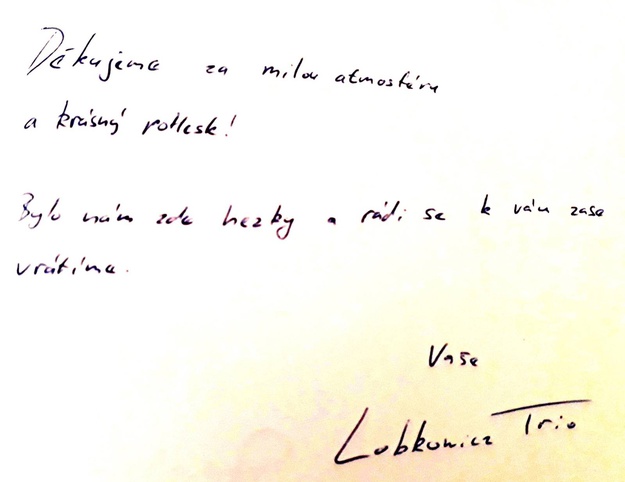 Děkujeme za milou atmosféru
a krásný potlesk!
Bylo nám zde hezky a rádi se k vám zase
vrátíme.
Vaše
Lobkowicz Trio